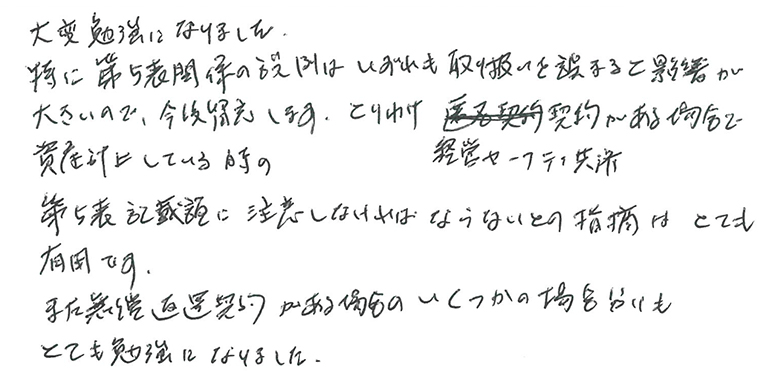 大変勉強になりました.
特に第5表関係の説例はいずれも取り扱いを誤すると影響が
大きいので、今後留意します. とりわけ 契約がある場合で
経営セーフティ共済
資産計上している時の
第5表記載額に注意しなければならないとの指摘は とても
有用です.
また無償返還契約がある場合のいくつかの場合分けも
とても勉強になりました.